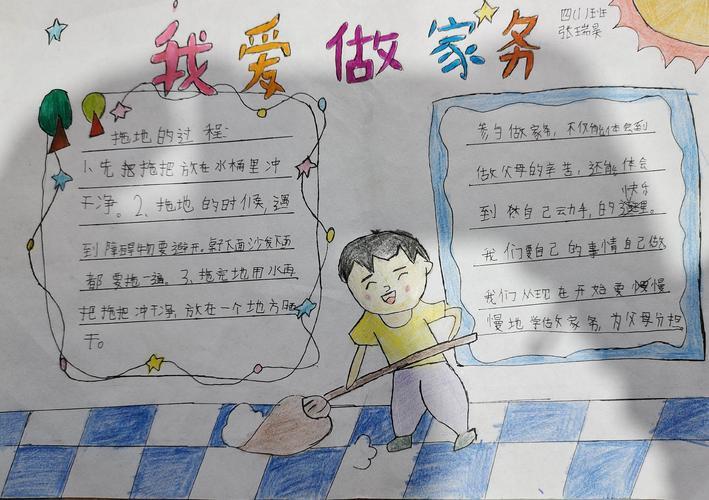 我爱做家务
四(1)班
张瑞昊
拖地的过程:
1、先把拖把放在水桶里冲
干净。2、拖地的时候,遇
到障碍物要避开。桌下面沙发下面
都要拖一遍。3、拖完地用水再
把拖把冲干净,放在一个地方晒
干。
参与做家务,不仅能体会到
做父母的辛苦,还能体会
快乐
到独自己动手,的。
我们要自己的事情自己做
我们从现在开始要慢
慢地学做家务,为父母分担